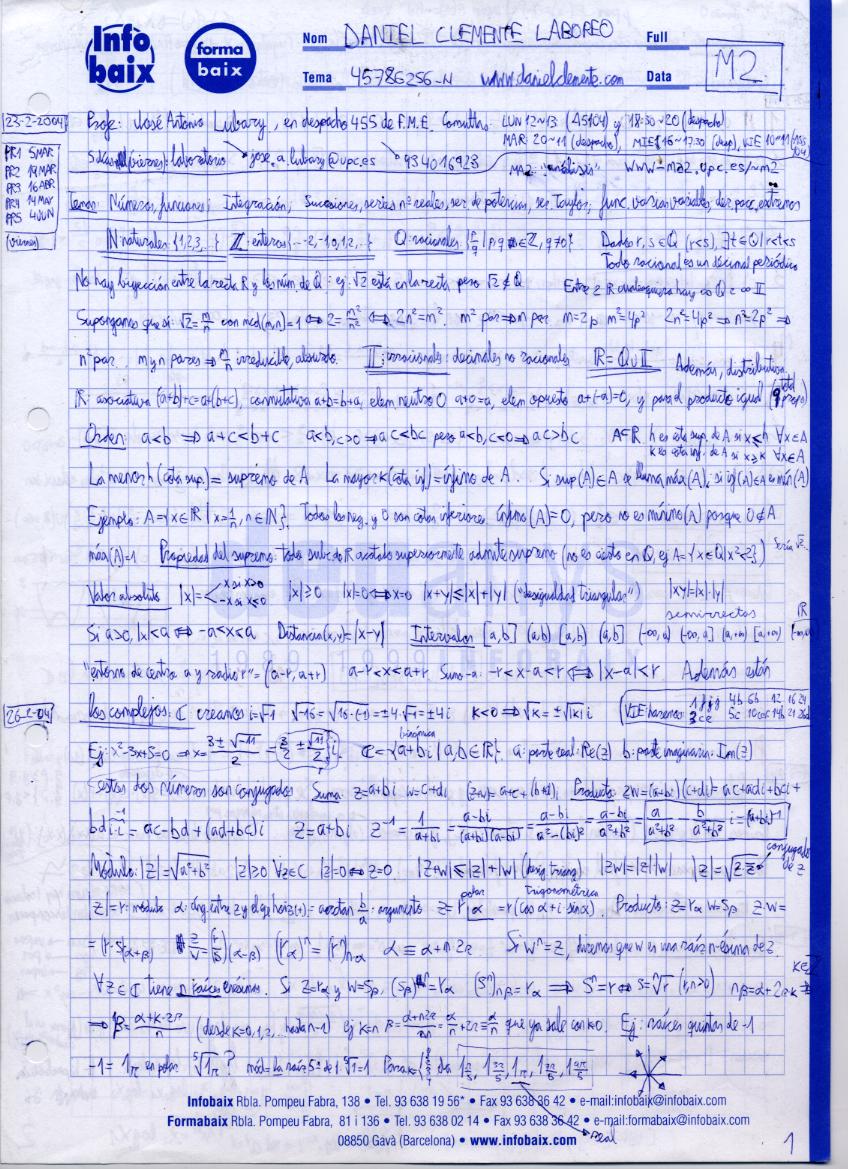 Infò baix
forma baix
Nom DANIEL CLEMENTE LABOREO Full
Tema 45786256-N www.danielclemente.com Data M2
23-2-2004 Profe: José Antonio Lubary, en despacho 455 de F.M.E. Consultas LUN 12~13 (A5104) y 18:30~20 (despacho)
MAR: 20~11 (despacho), MIE 16~17:30 (desp), VIE 10~11
PR1 5MAR
PR2 19MAR
PR3 16ABR
PR4 14MAY
PR5 4JUN
(viernes)
(viernes): laboratorio jose.a.lubary@upc.es 934016923 MA2: "análisis" www-ma2.upc.es/~m2
Temas: Números, funciones; Integración; Sucesiones, series nº reales, ser. de potencias, ser. Taylor; func. varias variables, der. parc, extremos
N: naturales {1,2,3,...} Z: enteros {...-2,-1,0,1,2,...} Q: racionales {p/q | p,q∈Z, q≠0} Dados r,s∈Q (r<s), ∃t∈Q | r<t<s
Todo racional es un decimal periódico
No hay biyección entre la recta R y los núm. de Q: ej √2 está en la recta, pero √2∉Q Entre 2 R cualesquiera hay ∞ Q e ∞ II
Supongamos que sí: √2=m/n con mcd(m,n)=1 ⇔ 2=m²/n² ⇔ 2n²=m². m² par ⇒ m par m=2p m²=4p² 2n²=4p² ⇒ n²=2p² ⇒
n² par. m y n pares ⇒ m/n irreducible, absurdo. II: irracionales: decimales no racionales R=Q∪II Además, distributiva
R: asociativa (a+b)+c=a+(b+c), conmutativa a+b=b+a, elem neutro 0 a+0=a, elem opuesto a+(-a)=0, y para el producto igual (total 9 props)
Orden: a<b ⇒ a+c<b+c a<b, c>0 ⇒ ac<bc pero a<b, c<0 ⇒ ac>bc A⊂R h es cota sup. de A si x≤h ∀x∈A
k es cota inf. de A si x≥k ∀x∈A
La menor h (cota sup.) = supremo de A La mayor k (cota inf) = ínfimo de A. Si sup(A)∈A se llama máx(A), si inf(A)∈A es mín(A)
Ejemplo: A={x∈R | x=1/n, n∈N}. Todos los neg. y 0 son cotas inferiores. ínfimo(A)=0, pero no es mínimo(A) porque 0∉A
máx(A)=1 Propiedad del supremo: todo subc. do R acotado superiormente admite supremo (no es cierto en Q, ej A={x∈Q | x²<2}) Sería √2
Valor absoluto |x|=< x si x≥0 -x si x≤0 |x|≥0 |x|=0⇔x=0 |x+y|≤|x|+|y| ("desigualdad triangular") |xy|=|x|·|y|
semi-rectas R
Si a>0, |x|<a ⇔ -a<x<a Distancia(x,y)=|x-y| Intervalos [a,b] (a,b) [a,b) (a,b] (-∞,a) (-∞,a] (a,+∞) [a,+∞) (-∞,∞)
"entorno de centro a y radio r" = (a-r, a+r) a-r<x<a+r Sumo -a: -r<x-a<r ⇔ |x-a|<r Además están
26-2-04 los complejos: C creamos i=√-1 √-16=√16·(-1)=±4·√-1=±4i k<0 ⇒ √k=±√|k| i
Ej: x²-3x+5=0 ⇒ x=3±√-11/2=3/2±√11/2 i binómica C={a+bi | a,b∈R}. a: parte real: Re(z) b: parte imaginaria: Im(z)
estos dos números son conjugados Suma: z=a+bi w=c+di (z+w)=a+c+(b+d)i Producto zw=(a+bi)(c+di)=ac+adi+bci+
bdi·i=ac-bd+(ad+bc)i z=a+bi z⁻¹=1/a+bi=a-bi/(a+bi)(a-bi)=a-bi/a²-(bi)²=a-bi/a²+b²=a/a²+b² - b/a²+b² i=(a+bi)⁻¹
Módulo: |z|=√a²+b² |z|≥0 ∀z∈C |z|=0⇔z=0 |z+w|≤|z|+|w| (desig. triang) |zw|=|z|·|w| |z|=√z·z̄ conjugado de z
|z|=r: módulo α: áng. entre z y el eje horiz(+)=arctan b/a: argumento polar z=r|α trigonométrica =r(cos α+i·sinα). Producto: z=rα w=sβ z·w=
=(r·s)(α+β) z/w=(r/s)(α-β) (rα)ⁿ=(rⁿ)nα α≡α+n·2π Si wⁿ=z, diremos que w es una raíz n-ésima de z.
∀z∈C tiene n raíces enésimas. Si z=rα y w=sβ, (sβ)ⁿ=rα (sⁿ)nβ=rα ⇒ sⁿ=r ⇔ s=ⁿ√r (r,n>0) nβ=α+2πk k∈Z
⇒β=α+k·2π/n (desde k=0,1,2,...hasta n-1) ej k=n β=α+n2π/n=α/n+2π≡α/n que ya sale con k=0 Ej: raíces quintas de -1
-1=1π en polar ⁵√1π? mód=la raíz 5ª de 1: ⁵√1=1 Para k= da 1π/5, 13π/5, 1π, 17π/5, 19π/5
real
Infobaix Rbla. Pompeu Fabra, 138 • Tel. 93 638 19 56* • Fax 93 638 36 42 • e-mail:infobaix@infobaix.com
Formabaix Rbla. Pompeu Fabra, 81 i 136 • Tel. 93 638 02 14 • Fax 93 638 36 42 • e-mail:formabaix@infobaix.com
08850 Gavà (Barcelona) • www.infobaix.com
1